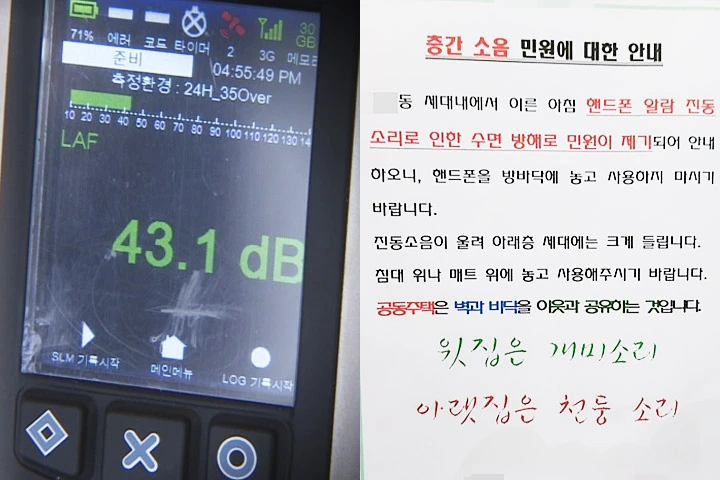 71% 에러 코드 타이머 2 3G 메모리
30 GB
준비
04:55:49 PM
측정환경 : 24H_35Over
10 20 30 40 50 60 70 80 90 100 110 120 130 14
LAF
43.1 dB
SLM 기록시작
메인메뉴
LOG 기록시작
층간 소음 민원에 대한 안내
동 세대내에서 이른 아침 핸드폰 알람 진동
소리로 인한 수면 방해로 민원이 제기되어 안내
하오니, 핸드폰을 방바닥에 놓고 사용하지 마시기
바랍니다.
진동소음이 울려 아래층 세대에는 크게 들립니다.
침대 위나 매트 위에 놓고 사용해주시기 바랍니다.
공동주택은 벽과 바닥을 이웃과 공유하는 것입니다.
윗집은 개미소리
아랫집은 천둥 소리